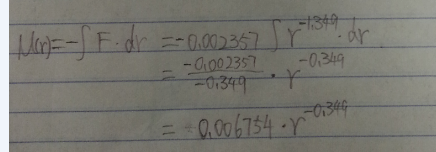 U(r)=-∫F·dr = -0.002357 ∫ r^{-1.349}·dr.
= \frac{-0.002357}{-0.349} · r^{-0.349}
= 0.006754 · r^{-0.349}